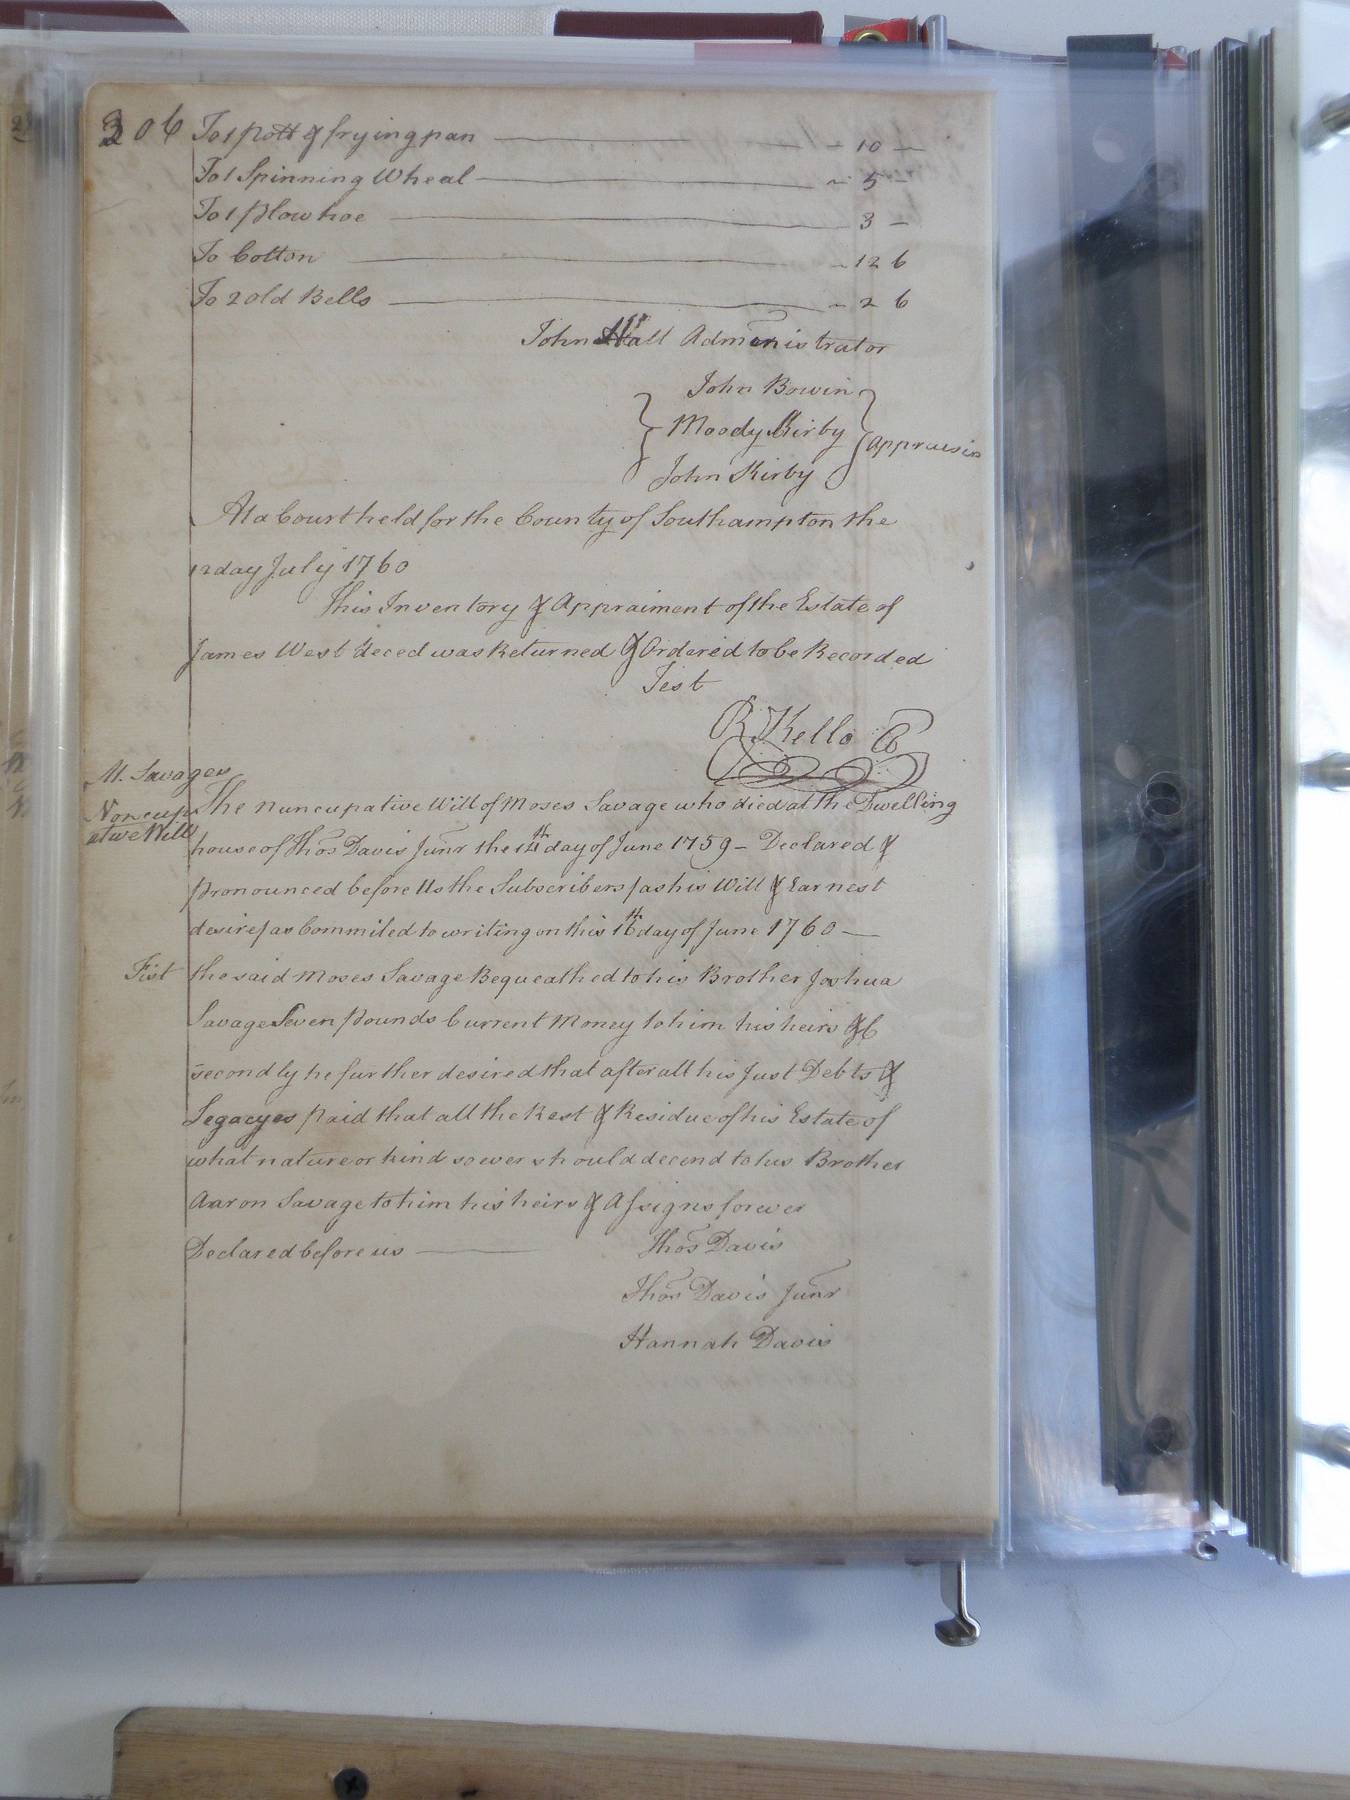 306 To 1 pott & frying pan — 10 —
To 1 Spinning Wheal — 5 —
To 1 plow hoe — 3 —
To Cotton — 12 6
To 2 old Bells — 2 6
John Hall Administrator
John Bowin
Moody Kirby
appraisis
John Kirby
At a Court held for the County of Southampton the
12 day July 1760
This Inventory & Appraiment of the Estate of
James West deced was Returned & Ordered to be Recorded
Test
R. Kello
M. Savages
Noncup
ative Will
The nuncupative Will of Moses Savage who died at the Dwelling
house of Thos Davis Junr the 14th day of June 1759 — Declared &
pronounced before Us the Subscribers as his Will & Earnest
desire as Commited to writing on this 16th day of June 1760 —
Fist the said Moses Savage Bequeathed to his Brother Joshua
Savage Seven pounds Current Money to him his heirs &c
secondly he further desired that after all his Just Debts &
Legacyes paid that all the Rest & Residue of his Estate of
what nature or kind soever should decend to his Brother
Aaron Savage to him his heirs & Assigns forever
Declared before us — Thos Davis
Thos Davis Junr
Hannah Davis